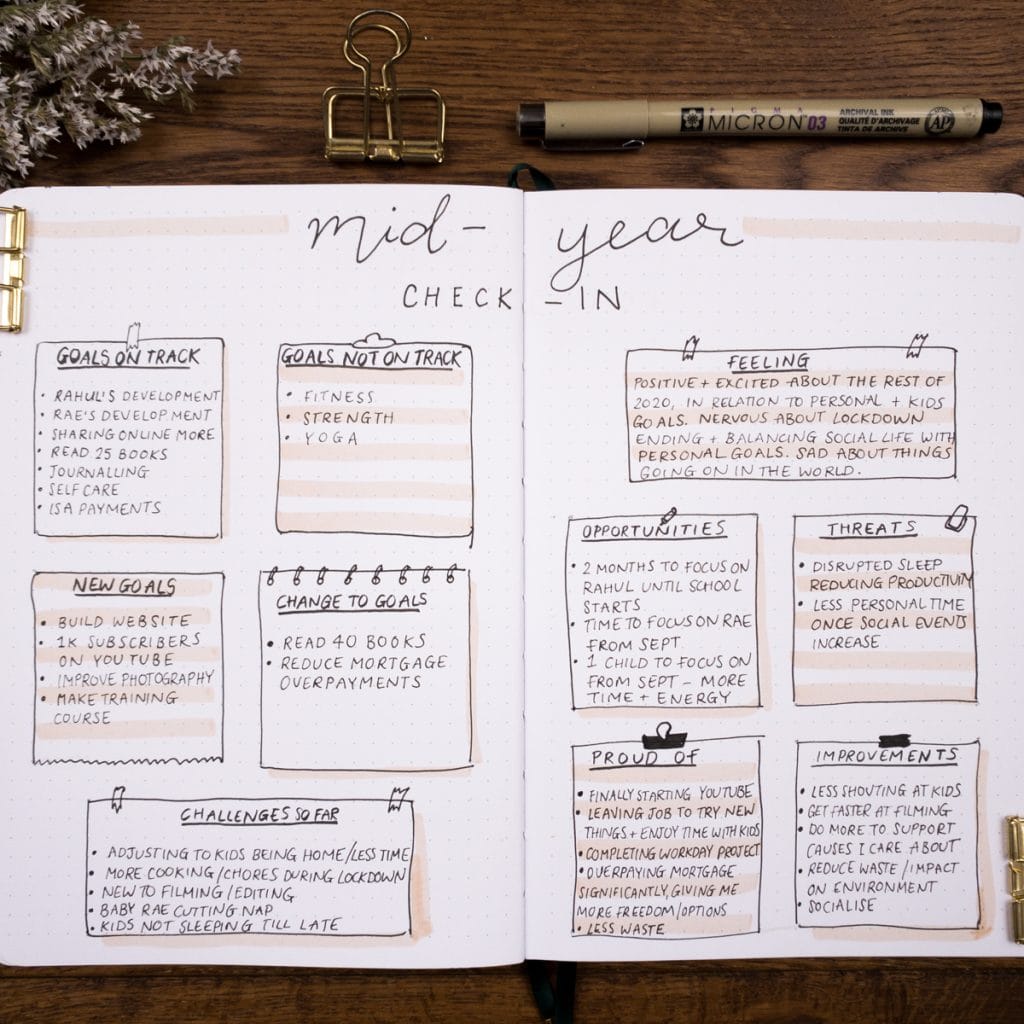 PIGMA
MICRON 03
ARCHIVAL INK
QUALITÉ D'ARCHIVAGE
TINTA DE ARCHIVE
AP
mid-year
CHECK-IN
GOALS ON TRACK
• RAHUL'S DEVELOPMENT
• RAE'S DEVELOPMENT
• SHARING ONLINE MORE
• READ 25 BOOKS
• JOURNALLING
• SELF CARE
• ISA PAYMENTS
GOALS NOT ON TRACK
• FITNESS
• STRENGTH
• YOGA
NEW GOALS
• BUILD WEBSITE
• 1K SUBSCRIBERS
ON YOUTUBE
• IMPROVE PHOTOGRAPHY
• MAKE TRAINING
COURSE
CHANGE TO GOALS
• READ 40 BOOKS
• REDUCE MORTGAGE
OVERPAYMENTS
CHALLENGES SO FAR
• ADJUSTING TO KIDS BEING HOME/LESS TIME
• MORE COOKING/CHORES DURING LOCKDOWN
• NEW TO FILMING/EDITING
• BABY RAE CUTTING NAP
• KIDS NOT SLEEPING TILL LATE
FEELING
POSITIVE + EXCITED ABOUT THE REST OF
2020, IN RELATION TO PERSONAL + KIDS
GOALS. NERVOUS ABOUT LOCKDOWN
ENDING + BALANCING SOCIAL LIFE WITH
PERSONAL GOALS. SAD ABOUT THINGS
GOING ON IN THE WORLD.
OPPORTUNITIES
• 2 MONTHS TO FOCUS ON
RAHUL UNTIL SCHOOL
STARTS
• TIME TO FOCUS ON RAE
FROM SEPT
• 1 CHILD TO FOCUS ON
FROM SEPT - MORE
TIME + ENERGY
THREATS
• DISRUPTED SLEEP
REDUCING PRODUCTIVITY
• LESS PERSONAL TIME
ONCE SOCIAL EVENTS
INCREASE
PROUD OF
• FINALLY STARTING YOUTUBE
• LEAVING JOB TO TRY NEW
THINGS + ENJOY TIME WITH KIDS
• COMPLETING WORKDAY PROJECT
• OVERPAYING MORTGAGE
SIGNIFICANTLY, GIVING ME
MORE FREEDOM/OPTIONS
• LESS WASTE
IMPROVEMENTS
• LESS SHOUTING AT KIDS
• GET FASTER AT FILMING
• DO MORE TO SUPPORT
CAUSES I CARE ABOUT
• REDUCE WASTE/IMPACT
ON ENVIRONMENT
• SOCIALISE